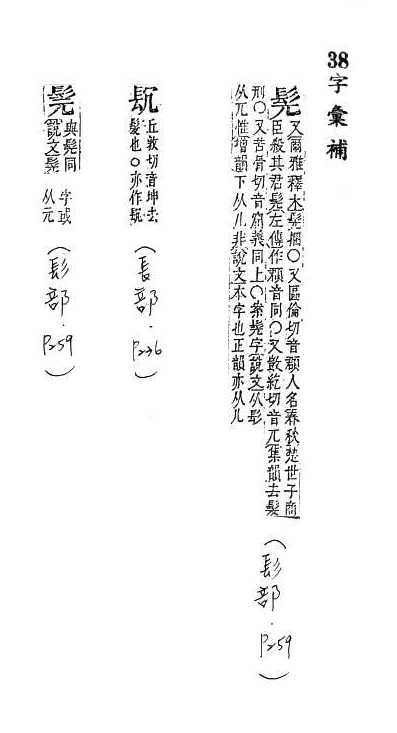 38字彙補
髡
又爾雅釋木髡梱〇又區倫切音頵人名春秋楚世子商
臣殺其君髡左傳作頵音同〇又散紇切音兀集韻去髮
刑〇又苦骨切音窟義同上〇案髡字說文从髟
从兀惟增韻下从儿非說文本字也正韻亦从儿
(髟部·P259)
丘敦切音坤去
髮也〇亦作
(長部·P226)
髨
與髡同 字或
說文髡 从元
(髟部·P259)